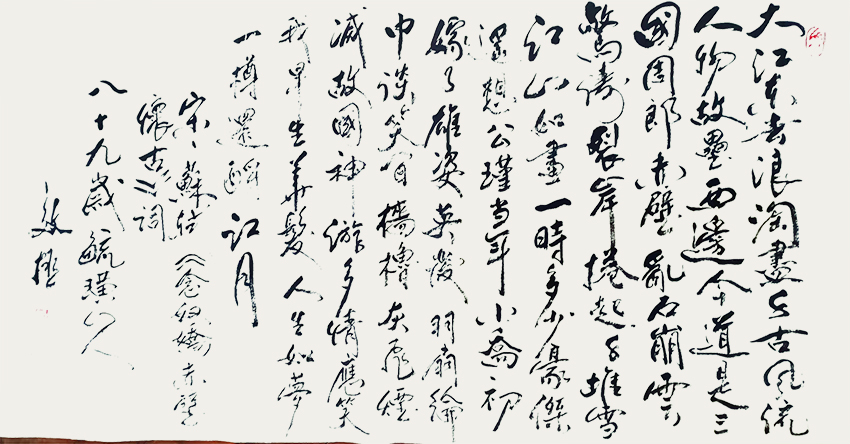 大江東去浪淘盡千古風流
人物故壘西邊人道是三
國周郎赤壁亂石崩雲
驚濤裂岸捲起千堆雪
江山如畫一時多少豪傑
遙想公瑾当年小喬初
嫁了雄姿英發羽扇綸
巾談笑間檣櫓灰飛煙
滅故國神遊多情應笑
我早生華髮人生如夢
一樽還酹江月
宋、蘇軾《念奴嬌赤壁
懷古》詞
八十九歲毓璜山人